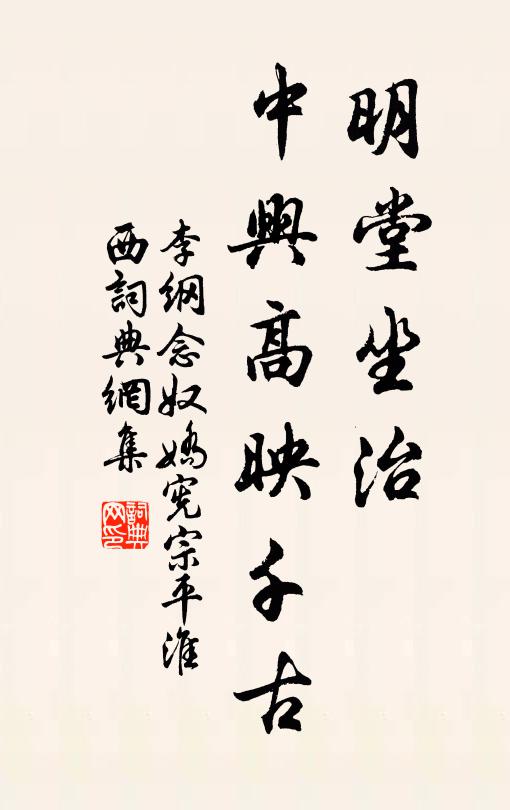 明堂坐治
中興高映千古
李綱念奴嬌憲宗平淮
西詞典網集
詞典网印